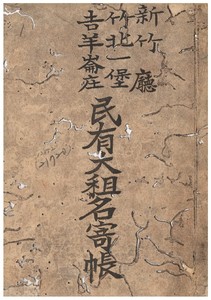 新竹廳
竹北一堡
吉羊崙庄
民有大租名寄帳